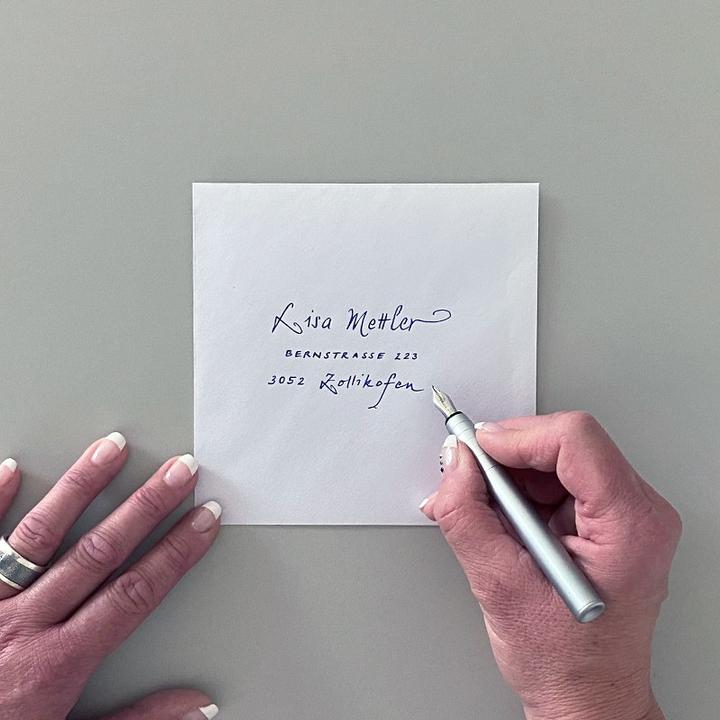 Lisa Mettler
BERNSTRASSE 223
3052 Zollikofen